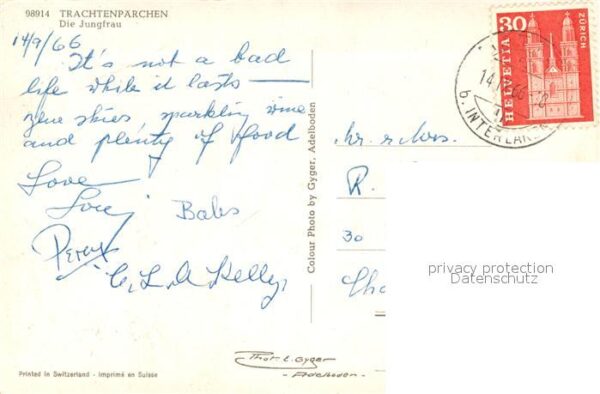 98914 TRACHTENPÄRCHEN
Die Jungfrau
14/9/66
It's not a bad
life while it lasts —
blue skies, sparkling wine
and plenty of food
Love
Babs
Percy
Kelly
Colour Photo by Gyger, Adelboden
Mr & Mrs.
R.
30
HELVETIA
30
ZÜRICH
14
66
b. INTERLAKEN
privacy protection
Datenschutz
Phot. E. Gyger
- Adelboden -
Printed in Switzerland - Imprimé en Suisse